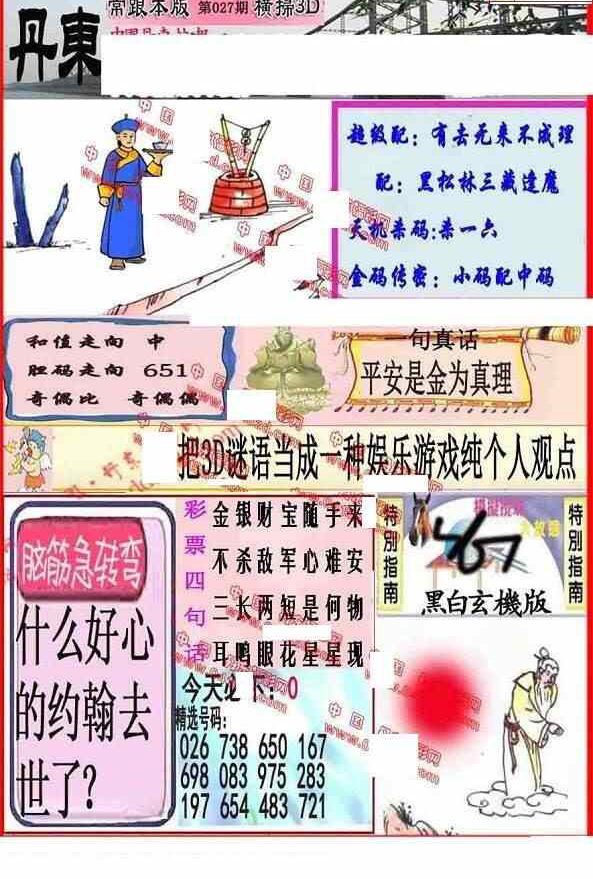 常跟本版 第027期 橫掃3D
丹東
超级配：有去无来不成理
配：黑松林三藏逢魔
天机杀码:杀一六
金码传密：小码配中码
和值走向 中
胆码走向 651
奇偶比 奇偶偶
一句真话
平安是金为真理
把3D谜语当成一种娱乐游戏纯个人观点
脑筋急转弯
什么好心
的约翰去
世了?
彩票四句话
金银财宝随手来
不杀敌军心难安
三长两短是何物
耳鸣眼花星星现
今天必下：0
精选号码：
026 738 650 167
698 083 975 283
197 654 483 721
特別指南
467
黑白玄機版
特別指南